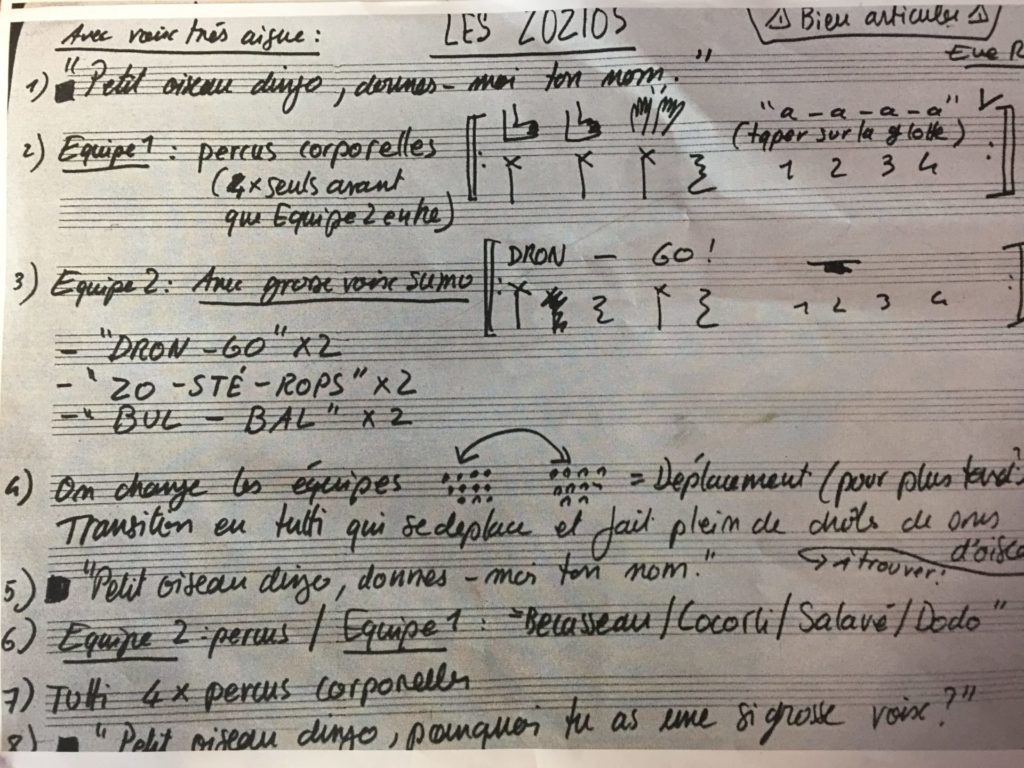 Avec voix très aigue :
LES ZOZIOS
⚠ Bien articuler ⚠
Eve R
1) "Petit oiseau dingo, donnes-moi ton nom."
"a - a - a - a"
(taper sur la glotte)
2) Equipe 1 : percus corporelles
1 2 3 4
(4x seuls avant
que Equipe 2 entre)
DRON - GO !
3) Equipe 2 : Avec grosse voix sumo
1 2 3 4
- "DRON - GO" x2
- "ZO - STÉ - ROPS" x2
- "BUL - BAL" x2
4) On change les équipes = Déplacement (pour plus tard?)
Transition en tutti qui se deplace et fait plein de drôls de
d'oisea
→ à trouver!
5) "Petit oiseau dingo, donnes-moi ton nom."
6) Equipe 2 : percus / Equipe 1 : "Becasseau / Cocorli / Salavé / Dodo"
7) Tutti 4x percus corporelles
8) "Petit oiseau dingo, pourquoi tu as une si grosse voix ?"